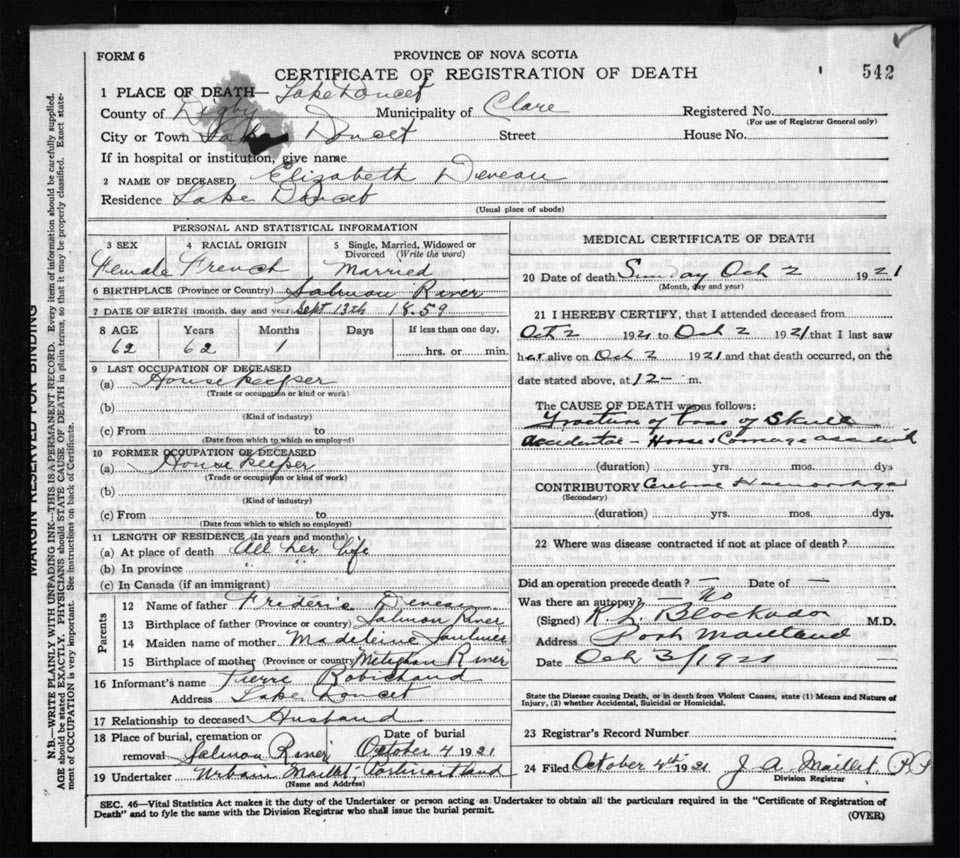 FORM 6
PROVINCE OF NOVA SCOTIA
CERTIFICATE OF REGISTRATION OF DEATH
542
1 PLACE OF DEATH— Lake Doucet
County of Digby Municipality of Clare Registered No.
(For use of Registrar General only)
City or Town Lake Doucet Street House No.
If in hospital or institution, give name
2 NAME OF DECEASED Elizabeth Deveau
Residence Lake Doucet
(Usual place of abode)
MARGIN RESERVED FOR BINDING
N.B.—WRITE PLAINLY WITH UNFADING INK—THIS IS A PERMANENT RECORD. Every item of information should be carefully supplied.
AGE should be stated EXACTLY. PHYSICIANS should STATE CAUSE OF DEATH in plain terms, so that it may be properly classified. Exact state-
ment of OCCUPATION is very important. See instructions on back of Certificate.
PERSONAL AND STATISTICAL INFORMATION
3 SEX 4 RACIAL ORIGIN 5 Single, Married, Widowed or
Divorced (Write the word)
Female French Married
6 BIRTHPLACE (Province or Country) Salmon River
7 DATE OF BIRTH (month, day and year) Sept 13th 1859
8 AGE Years Months Days If less than one day,
62 62 1 hrs. or min.
9 LAST OCCUPATION OF DECEASED
(a) House Keeper
(Trade or occupation or kind or work)
(b)
(Kind of industry)
(c) From to
(Date from which to which so employed)
10 FORMER OCCUPATION OF DECEASED
(a) House Keeper
(Trade or occupation or kind of work)
(b)
(Kind of industry)
(c) From to
(Date from which to which so employed)
11 LENGTH OF RESIDENCE (In years and months)
(a) At place of death All her life
(b) In province " " "
(c) In Canada (if an immigrant)
Parents
12 Name of father Frédéric Deveau
13 Birthplace of father (Province or country) Salmon River
14 Maiden name of mother Madeleine Saulnier
15 Birthplace of mother (Province or country) Meteghan River
16 Informant's name Pierre Robichaud
Address Lake Doucet
17 Relationship to deceased Husband
18 Place of burial, cremation or Date of burial
removal Salmon River October 4 1921
19 Undertaker Urbain Maillet, Port Maitland
(Name and Address)
MEDICAL CERTIFICATE OF DEATH
20 Date of death Sunday Oct 2 1921
(Month, day and year)
21 I HEREBY CERTIFY, that I attended deceased from
Oct 2 1921 to Oct 2 1921 that I last saw
her alive on Oct 2 1921 and that death occurred, on the
date stated above, at 12— m.
The CAUSE OF DEATH was as follows:
Fracture of base of Skull
accidental – Horse & Carriage accident
(duration) yrs. mos. dys
CONTRIBUTORY Cerebral Haemorrhage
(Secondary)
(duration) yrs. mos. dys.
22 Where was disease contracted if not at place of death?
Did an operation precede death? — Date of —
Was there an autopsy? — No
(Signed) M.D.
Address Port Maitland
Date Oct 3/1921
State the Disease causing Death, or in death from Violent Causes, state (1) Means and Nature of
Injury, (2) whether Accidental, Suicidal or Homicidal.
23 Registrar's Record Number
24 Filed October 4th 1921 J. A. Maillet, P.P.
Division Registrar
SEC. 46—Vital Statistics Act makes it the duty of the Undertaker or person acting as Undertaker to obtain all the particulars required in the "Certificate of Registration of
Death" and to fyle the same with the Division Registrar who shall issue the burial permit.
(OVER)